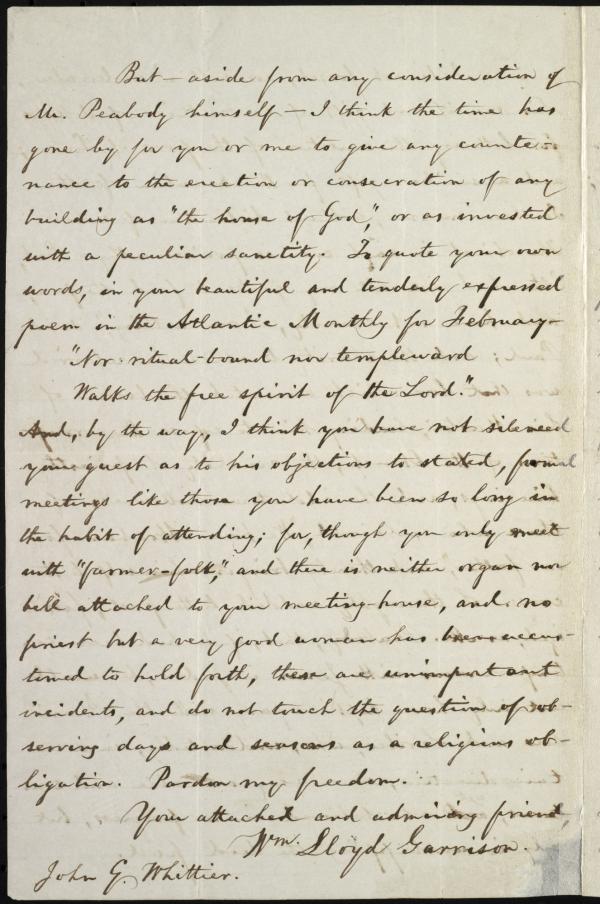 But — aside from any consideration of
Mr. Peabody himself — I think the time has
gone by for you or me to give any counte-
nance to the erection or consecration of any
building as "the house of God," or as invested
with a peculiar sanctity. To quote your own
words, in your beautiful and tenderly expressed
poem in the Atlantic Monthly for February—
"Nor ritual-bound nor templeward
Walks the free spirit of the Lord."
And, by the way, I think you have not silenced
your guest as to his objections to stated, formal
meetings like those you have been so long in
the habit of attending; for, though you only meet
with "farmer-folk," and there is neither organ nor
bell attached to your meeting-house, and no
priest but a very good woman has been accus-
tomed to hold forth, these are unimportant
incidents, and do not touch the question of ob-
serving days and seasons as a religious ob-
ligation. Pardon my freedom.
Your attached and admiring friend,
Wm. Lloyd Garrison.
John G. Whittier.